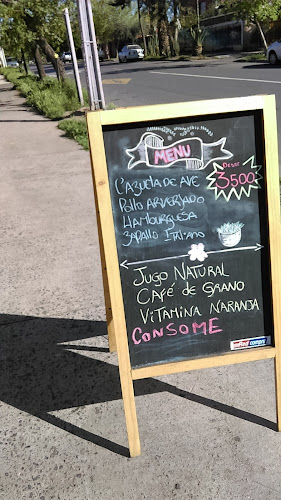 MENU
DESDE
3500
CAZUELA DE AVE
POLLO ARVERJADO
HAMBURGUESA
ZAPALLO ITALIANO
JUGO NATURAL
CAFÉ DE GRANO
VITAMINA NARANJA
CONSOME
compra